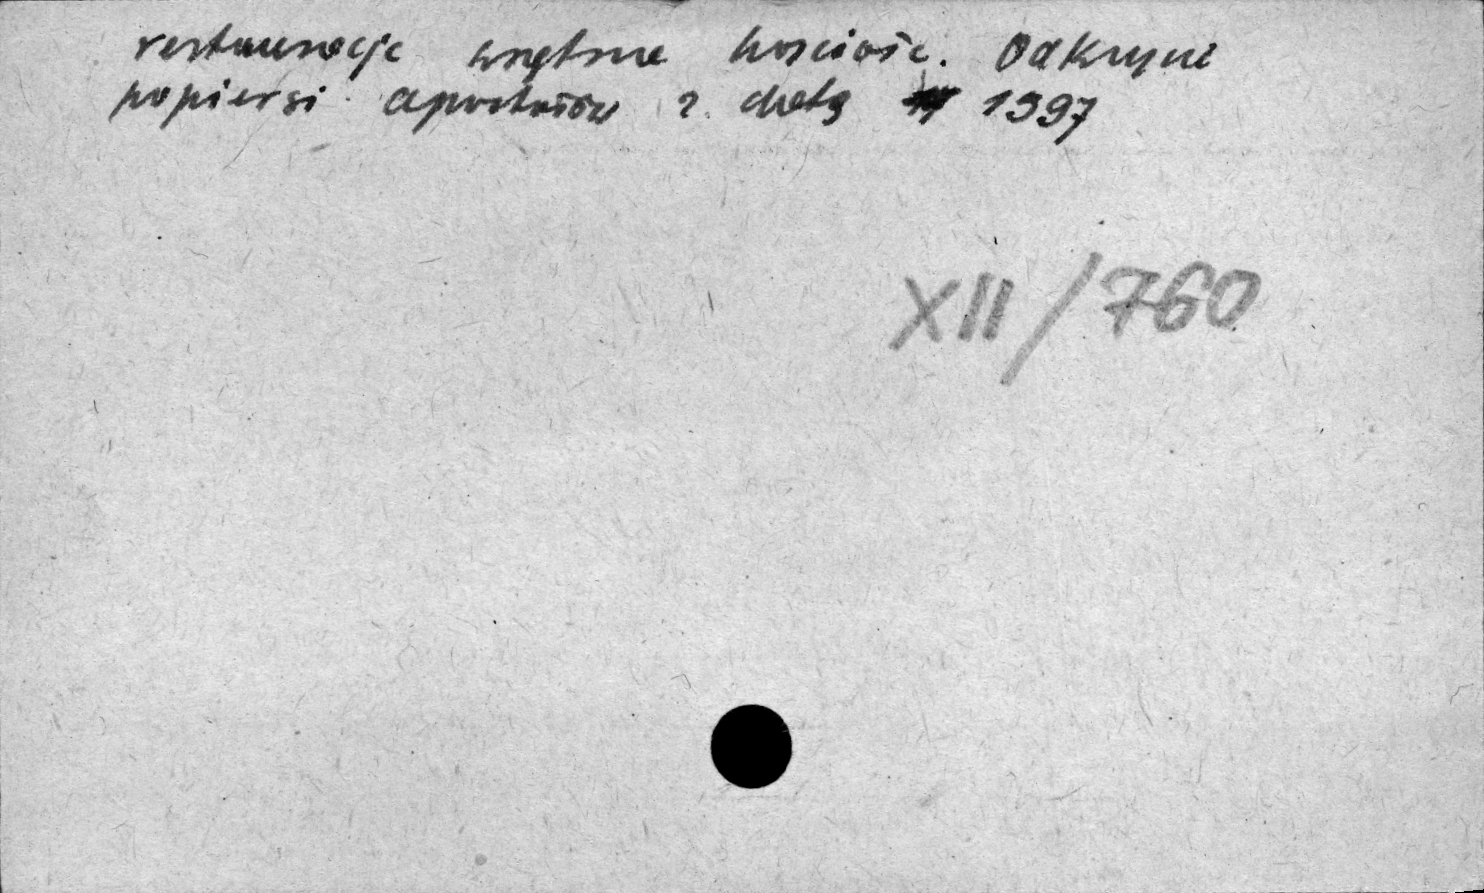 restauracja wnętrza kościoła. Odkrycie
popiersi apostołów z datą 1397
XII/760